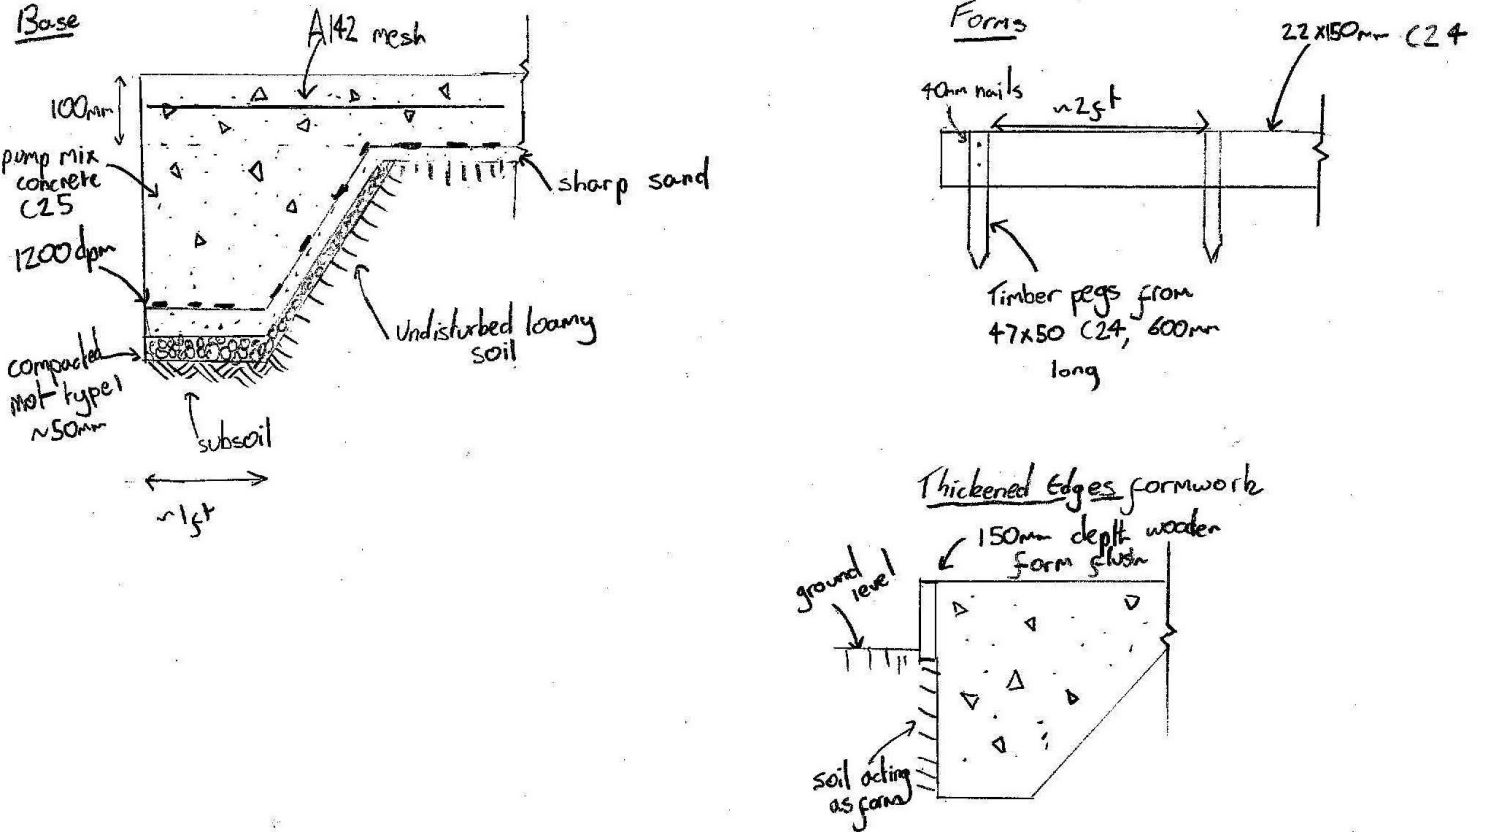 Base
A142 mesh
100mm
pump mix
concrete
C25
1200 dpm
compacted
mot type 1
~50mm
subsoil
~1ft
sharp sand
undisturbed loamy
soil
Forms
22x150mm C24
40mm nails
~2ft
Timber pegs from
47x50 C24, 600mm
long
Thickened Edges formwork
150mm depth wooden
form flush
ground
level
soil acting
as form